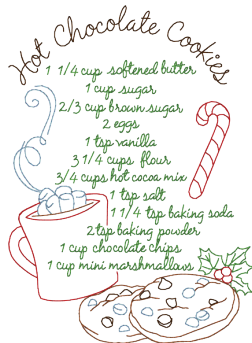 Hot Chocolate Cookies
1 1/4 cup softened butter
1 cup sugar
2/3 cup brown sugar
2 eggs
1 tsp vanilla
3 1/4 cups flour
3/4 cups hot cocoa mix
1 tsp salt
1 1/4 tsp baking soda
2 tsp baking powder
1 cup chocolate chips
1 cup mini marshmallows